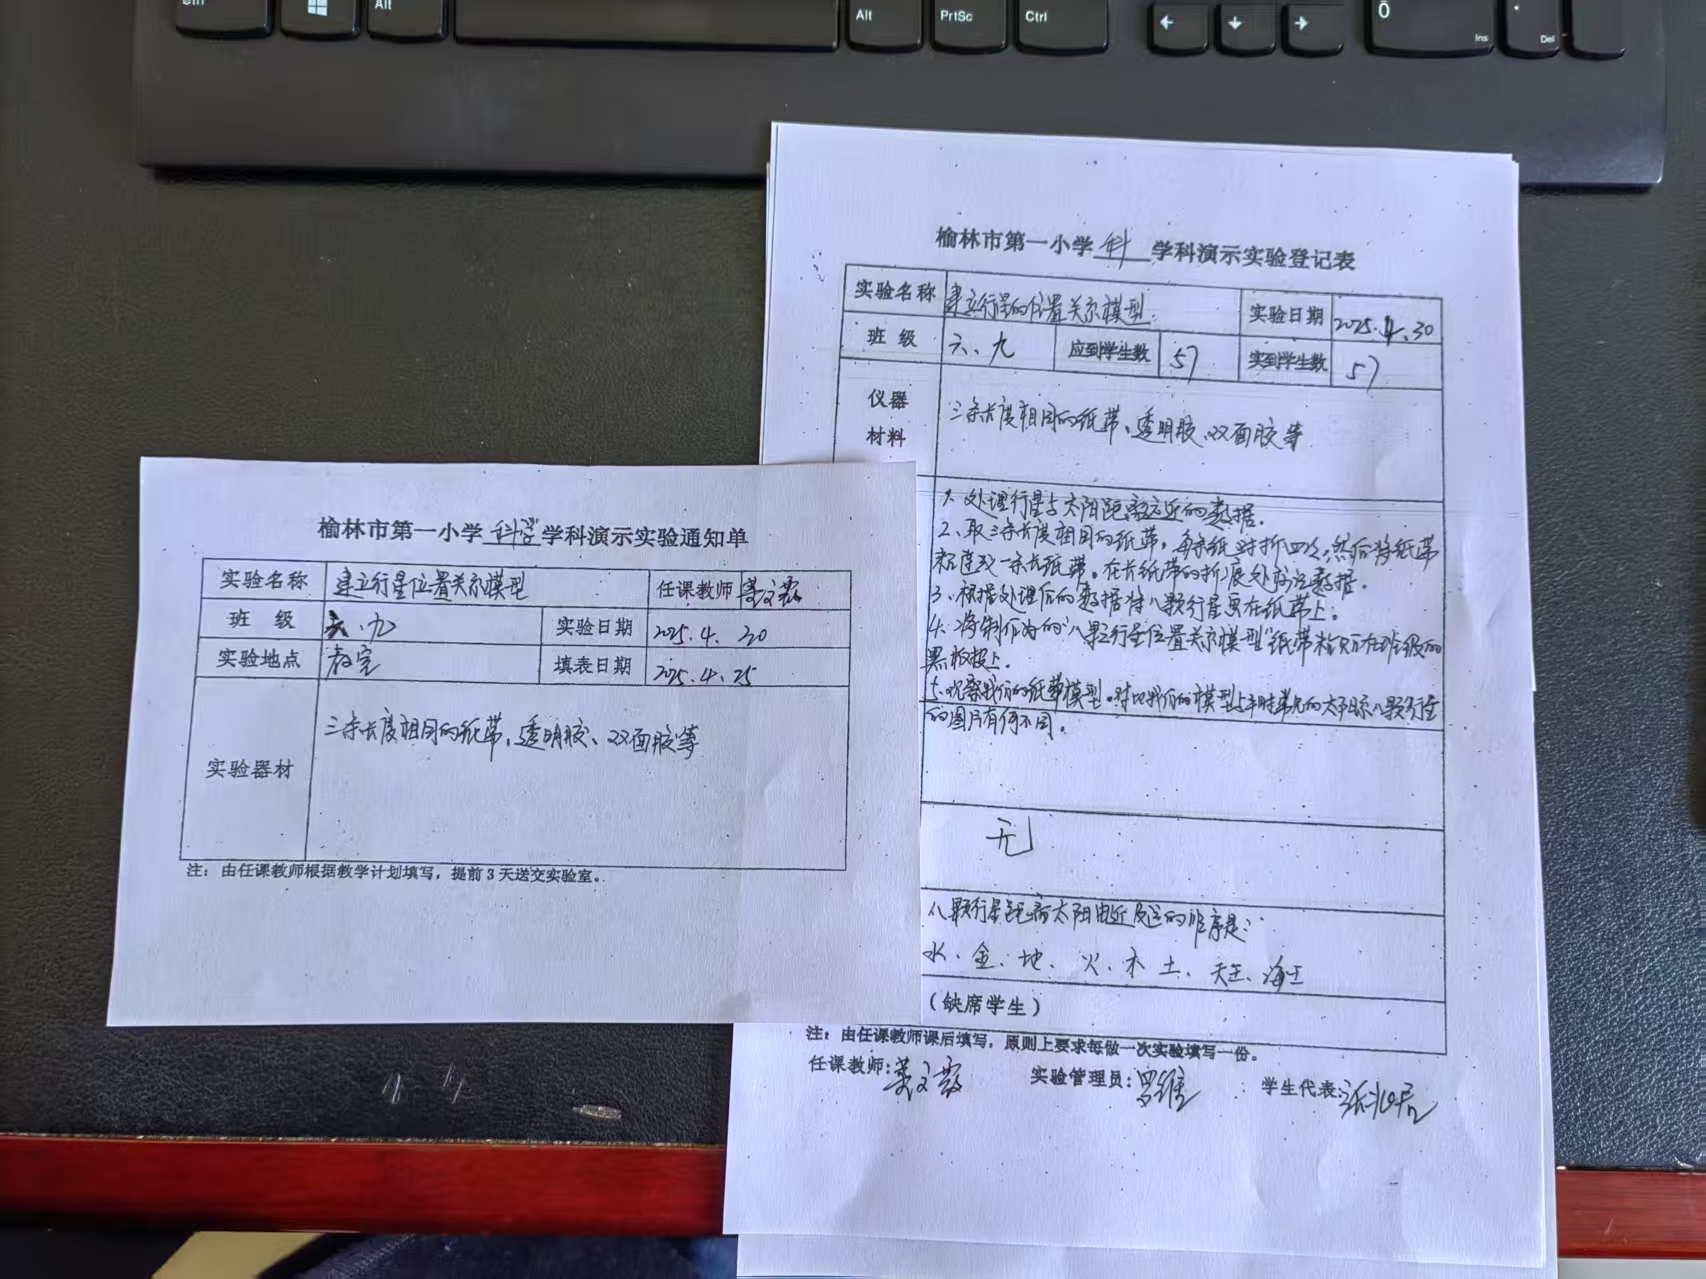 Ctrl
Alt
Alt
PrtSc
Ctrl
0
Ins
.
Del
榆林市第一小学 科学 学科演示实验通知单
实验名称 建立行星位置关系模型 任课教师
班 级 六、九 实验日期 2025.4.30
实验地点 教室 填表日期 2025.4.25
实验器材 三条长度相同的纸带、透明胶、双面胶等
注：由任课教师根据教学计划填写，提前3天送交实验室。
榆林市第一小学 科 学科演示实验登记表
实验名称 建立行星的位置关系模型 实验日期 2025.4.30
班 级 六、九 应到学生数 57 实到学生数 57
仪器
材料
三条长度相同的纸带、透明胶、双面胶等
1、处理行星与太阳距离远近的数据。
2、取三条长度相同的纸带，每条纸对折四次，然后将纸带
粘连成一条长纸带。在长纸带的折痕处标注数据。
3、根据处理后的数据将八颗行星画在纸带上。
4、将制作好的"八颗行星位置关系模型"纸带粘贴在班级的
黑板报上。
5、观察我们的纸带模型。对比我们的模型与平时常见的太阳系八颗行星
的图片有何不同。
无
八颗行星距离太阳由近及远的顺序是：
水、金、地、火、木、土、天王、海王
（缺席学生）
注：由任课教师课后填写，原则上要求每做一次实验填写一份。
任课教师: 实验管理员: 罗维 学生代表: